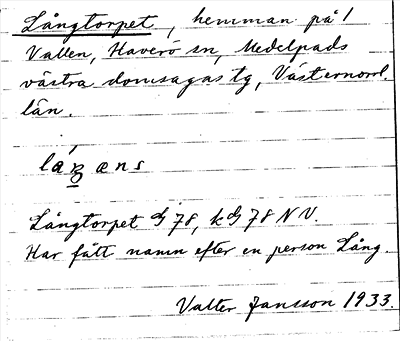 Långtorpet, hemman på 1
Vallen, Haverö sn, Medelpads
västra domsagas tg, Västernorrl.
län.
Långtorpet G 78, kG 78 NV.
Har fått namn efter en person Lång.
Valter Jansson 1933.